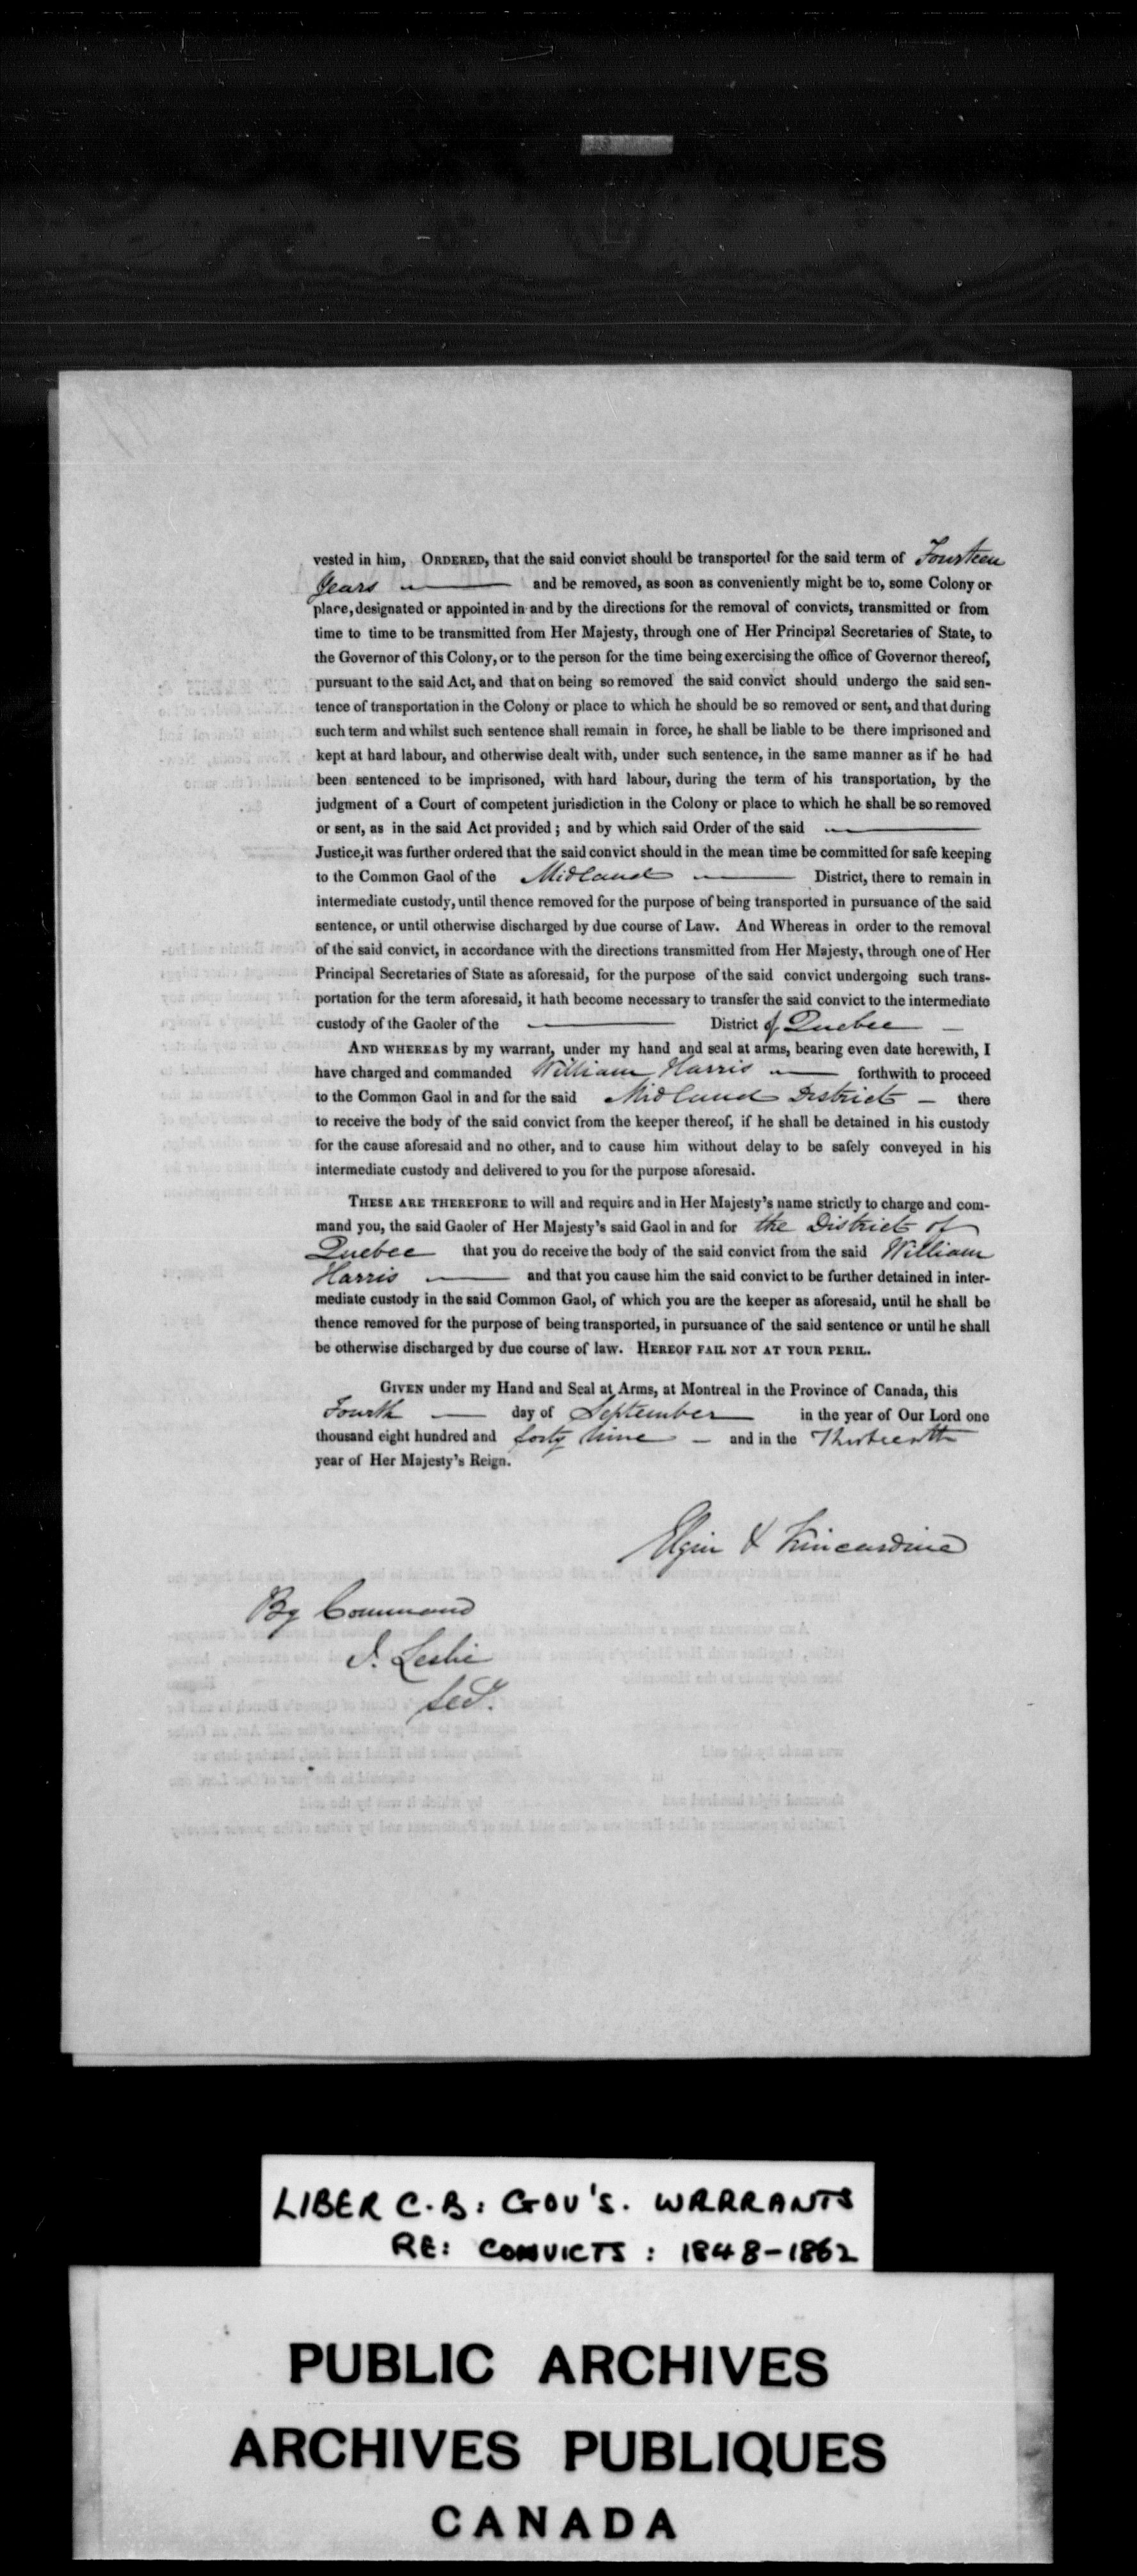 vested in him, ORDERED, that the said convict should be transported for the said term of Fourteen
Years and be removed, as soon as conveniently might be to, some Colony or
place, designated or appointed in and by the directions for the removal of convicts, transmitted or from
time to time to be transmitted from Her Majesty, through one of Her Principal Secretaries of State, to
the Governor of this Colony, or to the person for the time being exercising the office of Governor thereof,
pursuant to the said Act, and that on being so removed the said convict should undergo the said sen-
tence of transportation in the Colony or place to which he should be so removed or sent, and that during
such term and whilst such sentence shall remain in force, he shall be liable to be there imprisoned and
kept at hard labour, and otherwise dealt with, under such sentence, in the same manner as if he had
been sentenced to be imprisoned, with hard labour, during the term of his transportation, by the
judgment of a Court of competent jurisdiction in the Colony or place to which he shall be so removed
or sent, as in the said Act provided; and by which said Order of the said
Justice, it was further ordered that the said convict should in the mean time be committed for safe keeping
to the Common Gaol of the Midland District, there to remain in
intermediate custody, until thence removed for the purpose of being transported in pursuance of the said
sentence, or until otherwise discharged by due course of Law. And Whereas in order to the removal
of the said convict, in accordance with the directions transmitted from Her Majesty, through one of Her
Principal Secretaries of State as aforesaid, for the purpose of the said convict undergoing such trans-
portation for the term aforesaid, it hath become necessary to transfer the said convict to the intermediate
custody of the Gaoler of the District of Quebec
AND WHEREAS by my warrant, under my hand and seal at arms, bearing even date herewith, I
have charged and commanded William Harris forthwith to proceed
to the Common Gaol in and for the said Midland District there
to receive the body of the said convict from the keeper thereof, if he shall be detained in his custody
for the cause aforesaid and no other, and to cause him without delay to be safely conveyed in his
intermediate custody and delivered to you for the purpose aforesaid.
THESE ARE THEREFORE to will and require and in Her Majesty's name strictly to charge and com-
mand you, the said Gaoler of Her Majesty's said Gaol in and for the District of
Quebec that you do receive the body of the said convict from the said William
Harris and that you cause him the said convict to be further detained in inter-
mediate custody in the said Common Gaol, of which you are the keeper as aforesaid, until he shall be
thence removed for the purpose of being transported, in pursuance of the said sentence or until he shall
be otherwise discharged by due course of law. HEREOF FAIL NOT AT YOUR PERIL.
GIVEN under my Hand and Seal at Arms, at Montreal in the Province of Canada, this
Fourth day of September in the year of Our Lord one
thousand eight hundred and forty nine and in the Thirteenth
year of Her Majesty's Reign.
Elgin & Kincardine
By Command
J. Leslie
Sec.
LIBER C.B: GOV'S. WARRANTS
RE: CONVICTS : 1848-1862
PUBLIC ARCHIVES
ARCHIVES PUBLIQUES
CANADA